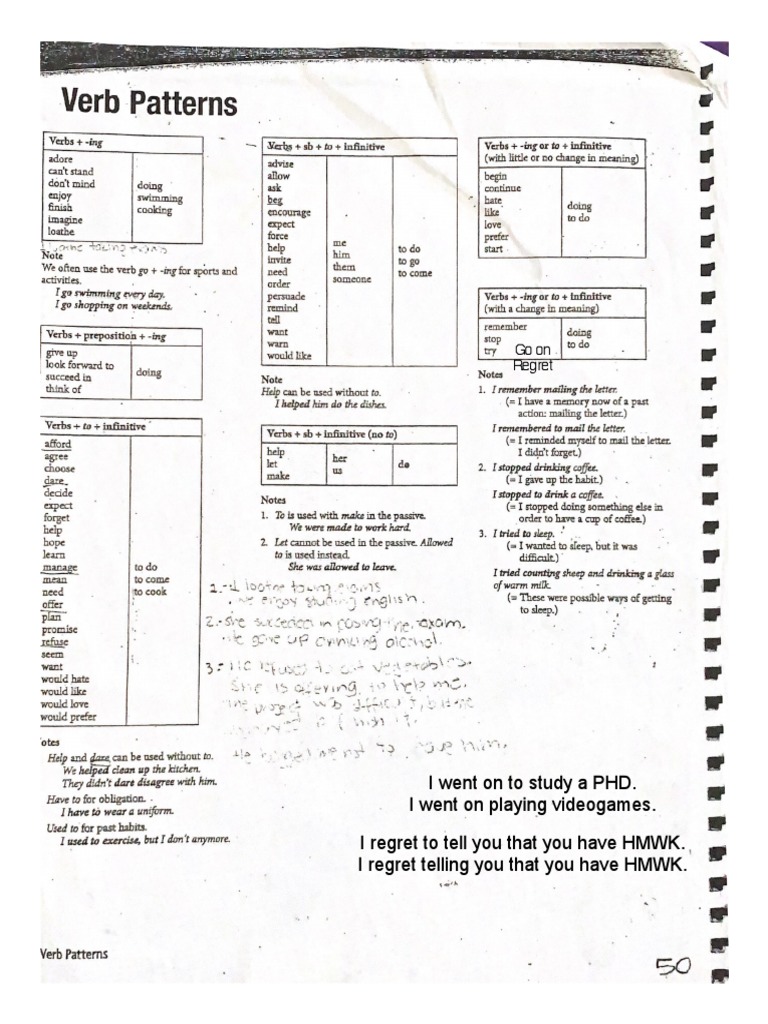 Verb Patterns
Verbs + -ing
adore
can't stand
don't mind
enjoy
finish
imagine
loathe
doing
swimming
cooking
I loathe taking exams
Note
We often use the verb go + -ing for sports and
activities.
I go swimming every day.
I go shopping on weekends.
Verbs + preposition + -ing
give up
look forward to
succeed in
think of
doing
Verbs + to + infinitive
afford
agree
choose
dare
decide
expect
forget
help
hope
learn
manage
mean
need
offer
plan
promise
refuse
seem
want
would hate
would like
would love
would prefer
to do
to come
to cook
otes
Help and dare can be used without to.
We helped clean up the kitchen.
They didn't dare disagree with him.
Have to for obligation.
I have to wear a uniform.
Used to for past habits.
I used to exercise, but I don't anymore.
Verbs + sb + to + infinitive
advise
allow
ask
beg
encourage
expect
force
help
invite
need
order
persuade
remind
tell
want
warn
would like
me
him
them
someone
to do
to go
to come
Note
Help can be used without to.
I helped him do the dishes.
Verbs + sb + infinitive (no to)
help
let
make
her
us
do
Notes
1. To is used with make in the passive.
We were made to work hard.
2. Let cannot be used in the passive. Allowed
to is used instead.
She was allowed to leave.
1.- I loathe taking exams
we enjoy studing english.
2.- she succeeded in posing the exam.
We gave up drinking alcohol.
3.- He refuses to eat vegetables.
She is ofering to help me.
the project was difficult, but he
to finish it.
He to save him.
Verbs + -ing or to + infinitive
(with little or no change in meaning)
begin
continue
hate
like
love
prefer
start
doing
to do
Verbs + -ing or to + infinitive
(with a change in meaning)
remember
stop
try
Go on
Regret
doing
to do
Notes
1. I remember mailing the letter.
(= I have a memory now of a past
action: mailing the letter.)
I remembered to mail the letter.
(= I reminded myself to mail the letter.
I didn't forget.)
2. I stopped drinking coffee.
(= I gave up the habit.)
I stopped to drink a coffee.
(= I stopped doing something else in
order to have a cup of coffee.)
3. I tried to sleep.
(= I wanted to sleep, but it was
difficult.)
I tried counting sheep and drinking a glass
of warm milk.
(= These were possible ways of getting
to sleep.)
I went on to study a PHD.
I went on playing videogames.
I regret to tell you that you have HMWK.
I regret telling you that you have HMWK.
Verb Patterns
50